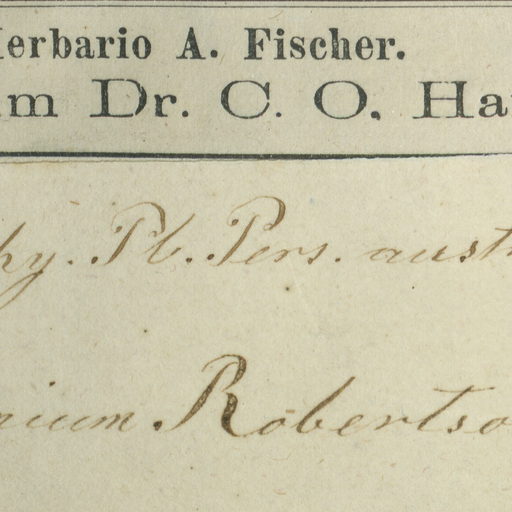 Herbario A. Fischer.
um Dr. C. O. Ha
hy. Pl. Pers. aust
nium Robertso